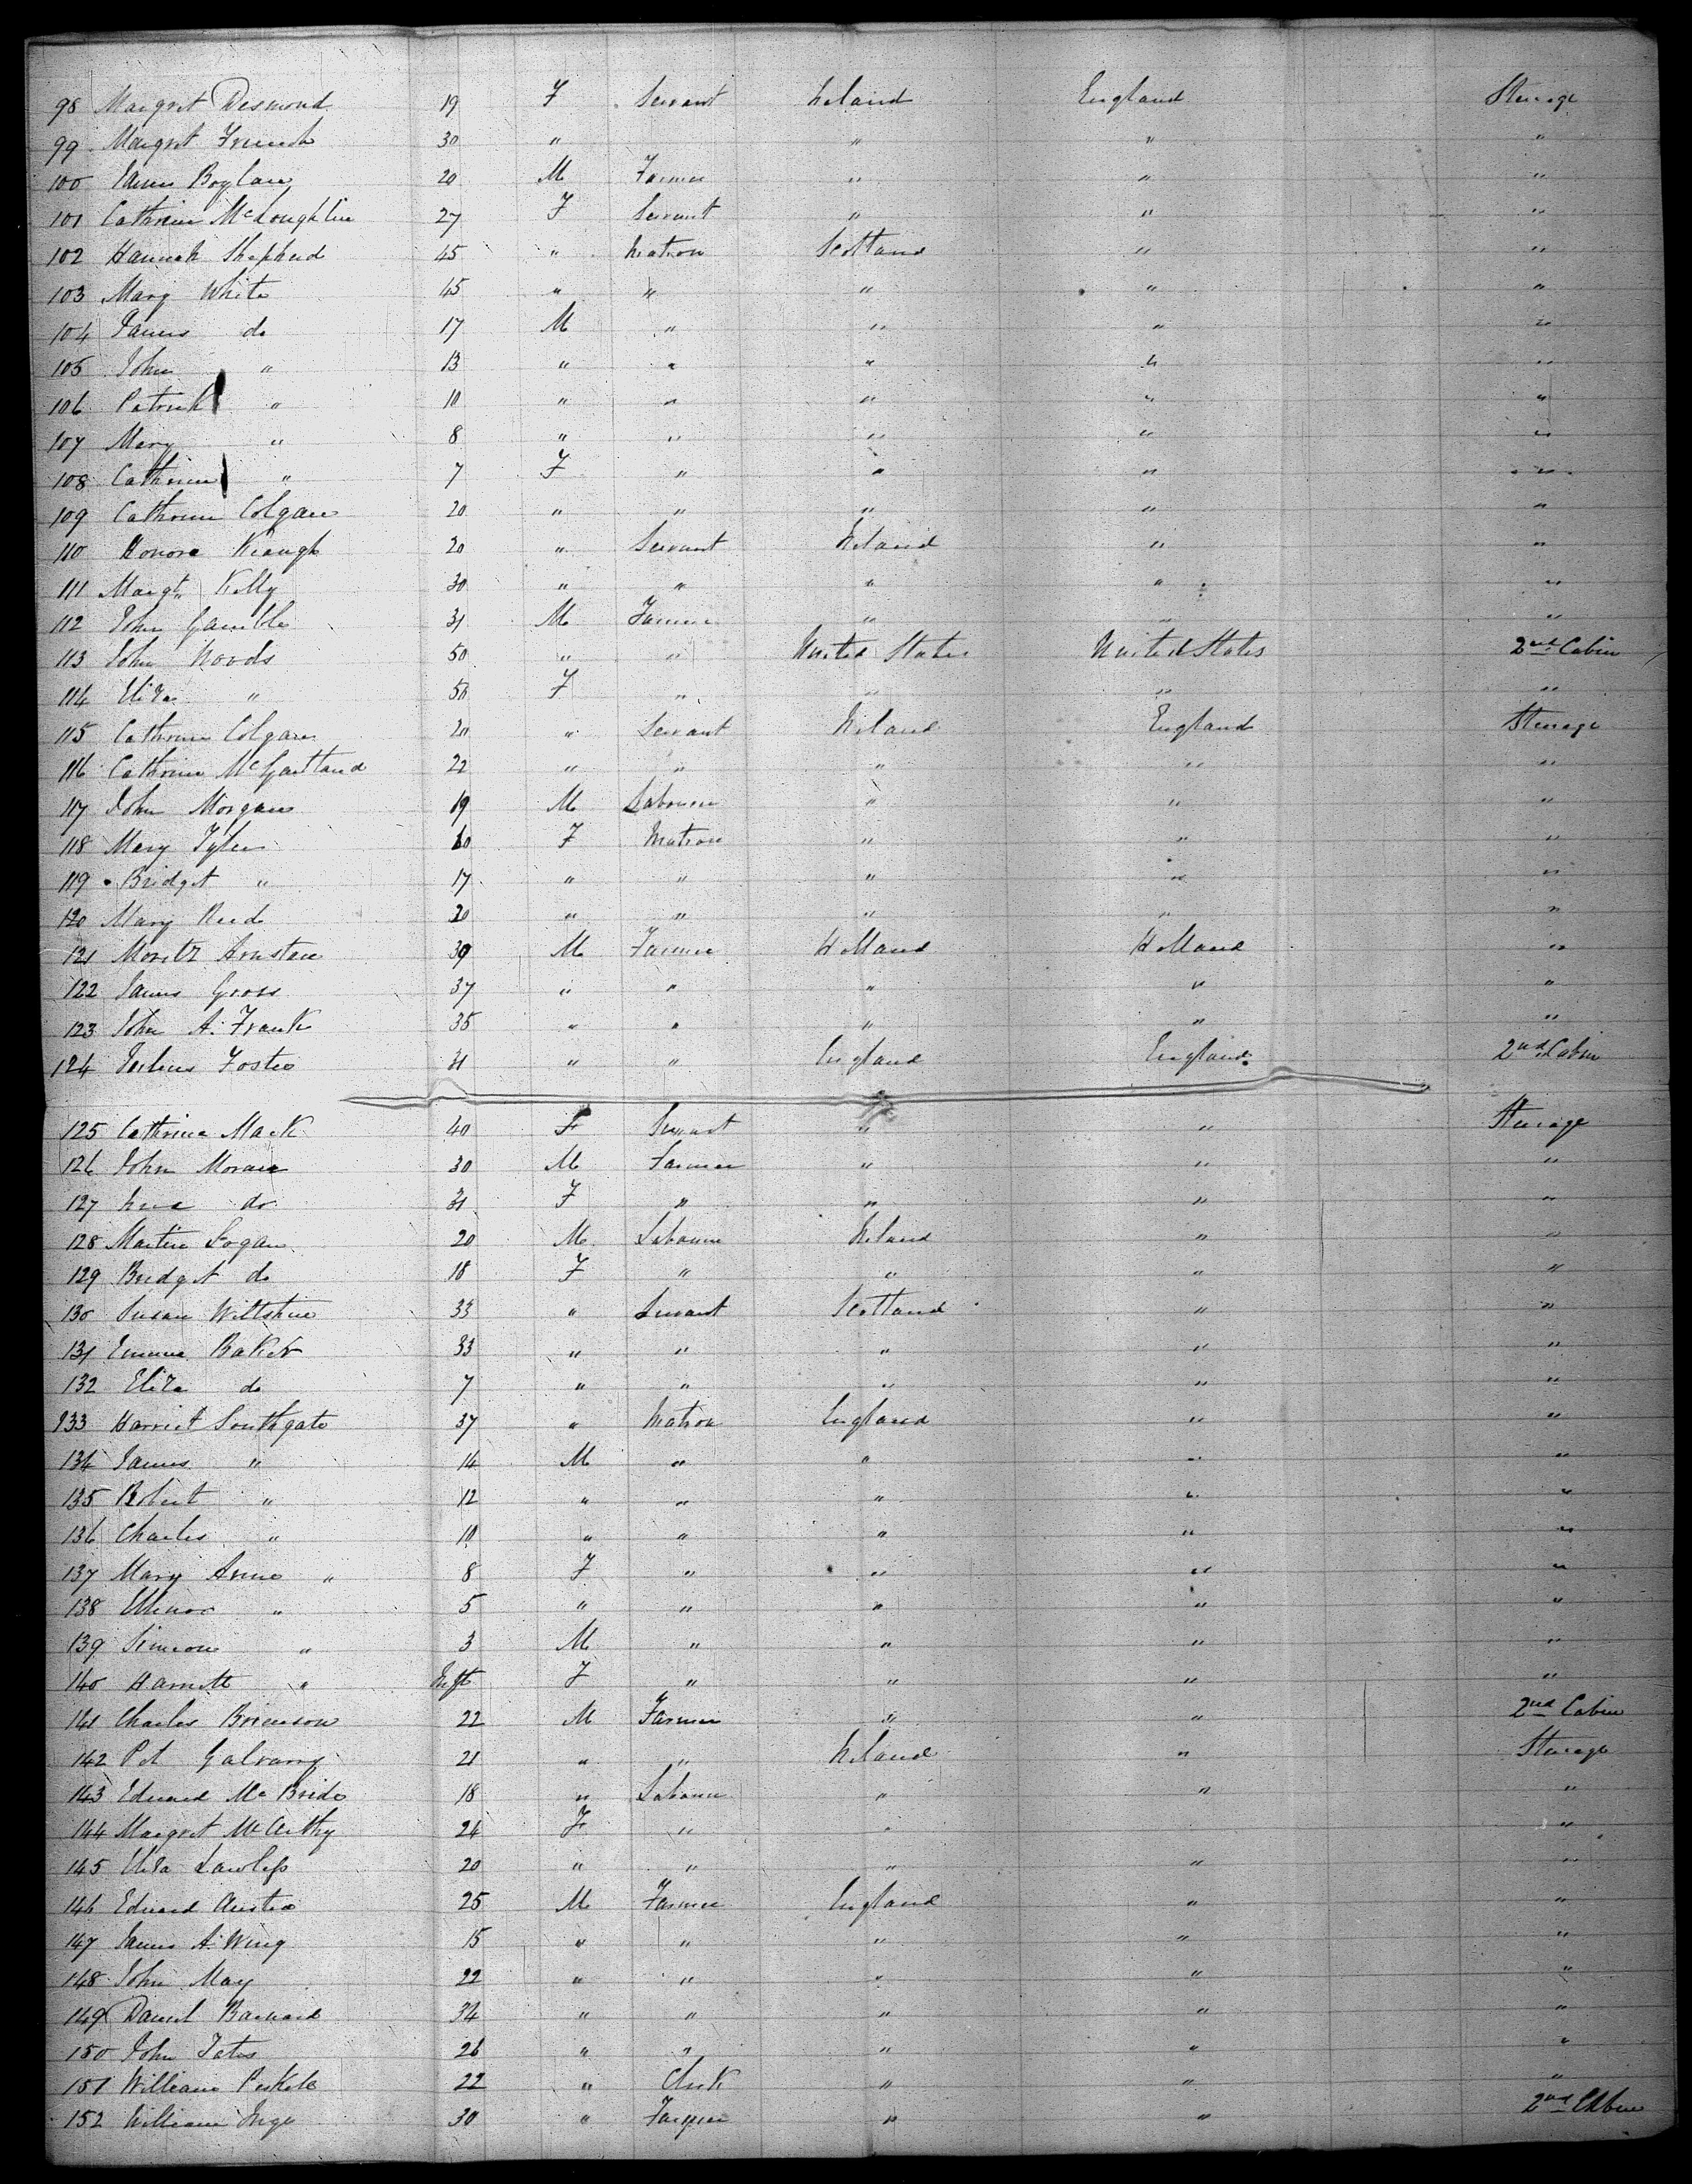 98 Margret Desmond 19 F Servant Ireland England Steerage
99 Margret French 30 " " " "
100 James Boylan 20 M Farmer " " "
101 Cathrine McLoughlin 27 F Servant " " "
102 Hannah Shepherd 45 " Matron Scotland " "
103 Mary White 45 " " " " "
104 James do 17 M " " " "
105 John " 13 " " " " "
106 Patrick " 10 " " " " "
107 Mary " 8 " " " " "
108 Cathrine " 7 F " " " "
109 Cathrine Colgan 20 " " " " "
110 Honora Keaugh 20 " Servant Ireland " "
111 Margt. Kelly 30 " " " " "
112 John Gamble 31 M Farmer " " "
113 John Woods 50 " " United States United States 2nd Cabin
114 Eliza " 50 F " " " "
115 Cathrine Colgan 20 " Servant Ireland England Steerage
116 Cathrine McGartland 22 " " " " "
117 John Morgan 19 M Labourer " " "
118 Mary Tyler F Matron " " "
119 Bridget " 17 " " " " "
120 Mary Reed 20 " " " " "
121 Moritz Arnstan 39 M Farmer Holland Holland "
122 James Gross 37 " " " " "
123 John A. Frank 35 " " " " "
124 Julius Foster 31 " " England England 2nd Cabin
125 Cathrine Mack 40 F Servant " " Steerage
126 John Moran 30 M Farmer " " "
127 do 31 F " " " "
128 Martin Logan 20 M Labourer Ireland " "
129 Bridget do 18 F " " " "
130 Susan Wiltshire 33 " Servant Scotland " "
131 Emma Baker 33 " " " " "
132 Eliza do 7 " " " " "
133 Harriet Southgate 37 " Matron England " "
134 James " 14 M " " " "
135 Robert " 12 " " " " "
136 Charles " 10 " " " " "
137 Mary Anne " 8 F " " " "
138 Ellinor " 5 " " " " "
139 Simeon " 3 M " " " "
140 Harriett " Inft F " " " "
141 Charles 22 M Farmer " " 2nd Cabin
142 Pat Galvany 21 " " Ireland " Steerage
143 Edward McBride 18 " Labourer " " "
144 Margret McCarthy 24 F " " "
145 Eliza Lawless 20 " " " " "
146 Edward Austin 25 M Farmer England " "
147 James A. Wing 15 " " " " "
148 John May 22 " " " " "
149 Daniel Barnard 34 " " " " "
150 John Tates 26 " " " " "
151 William 22 " Clerk " " "
152 William Inge 30 " Farmer " " 2nd Cabin